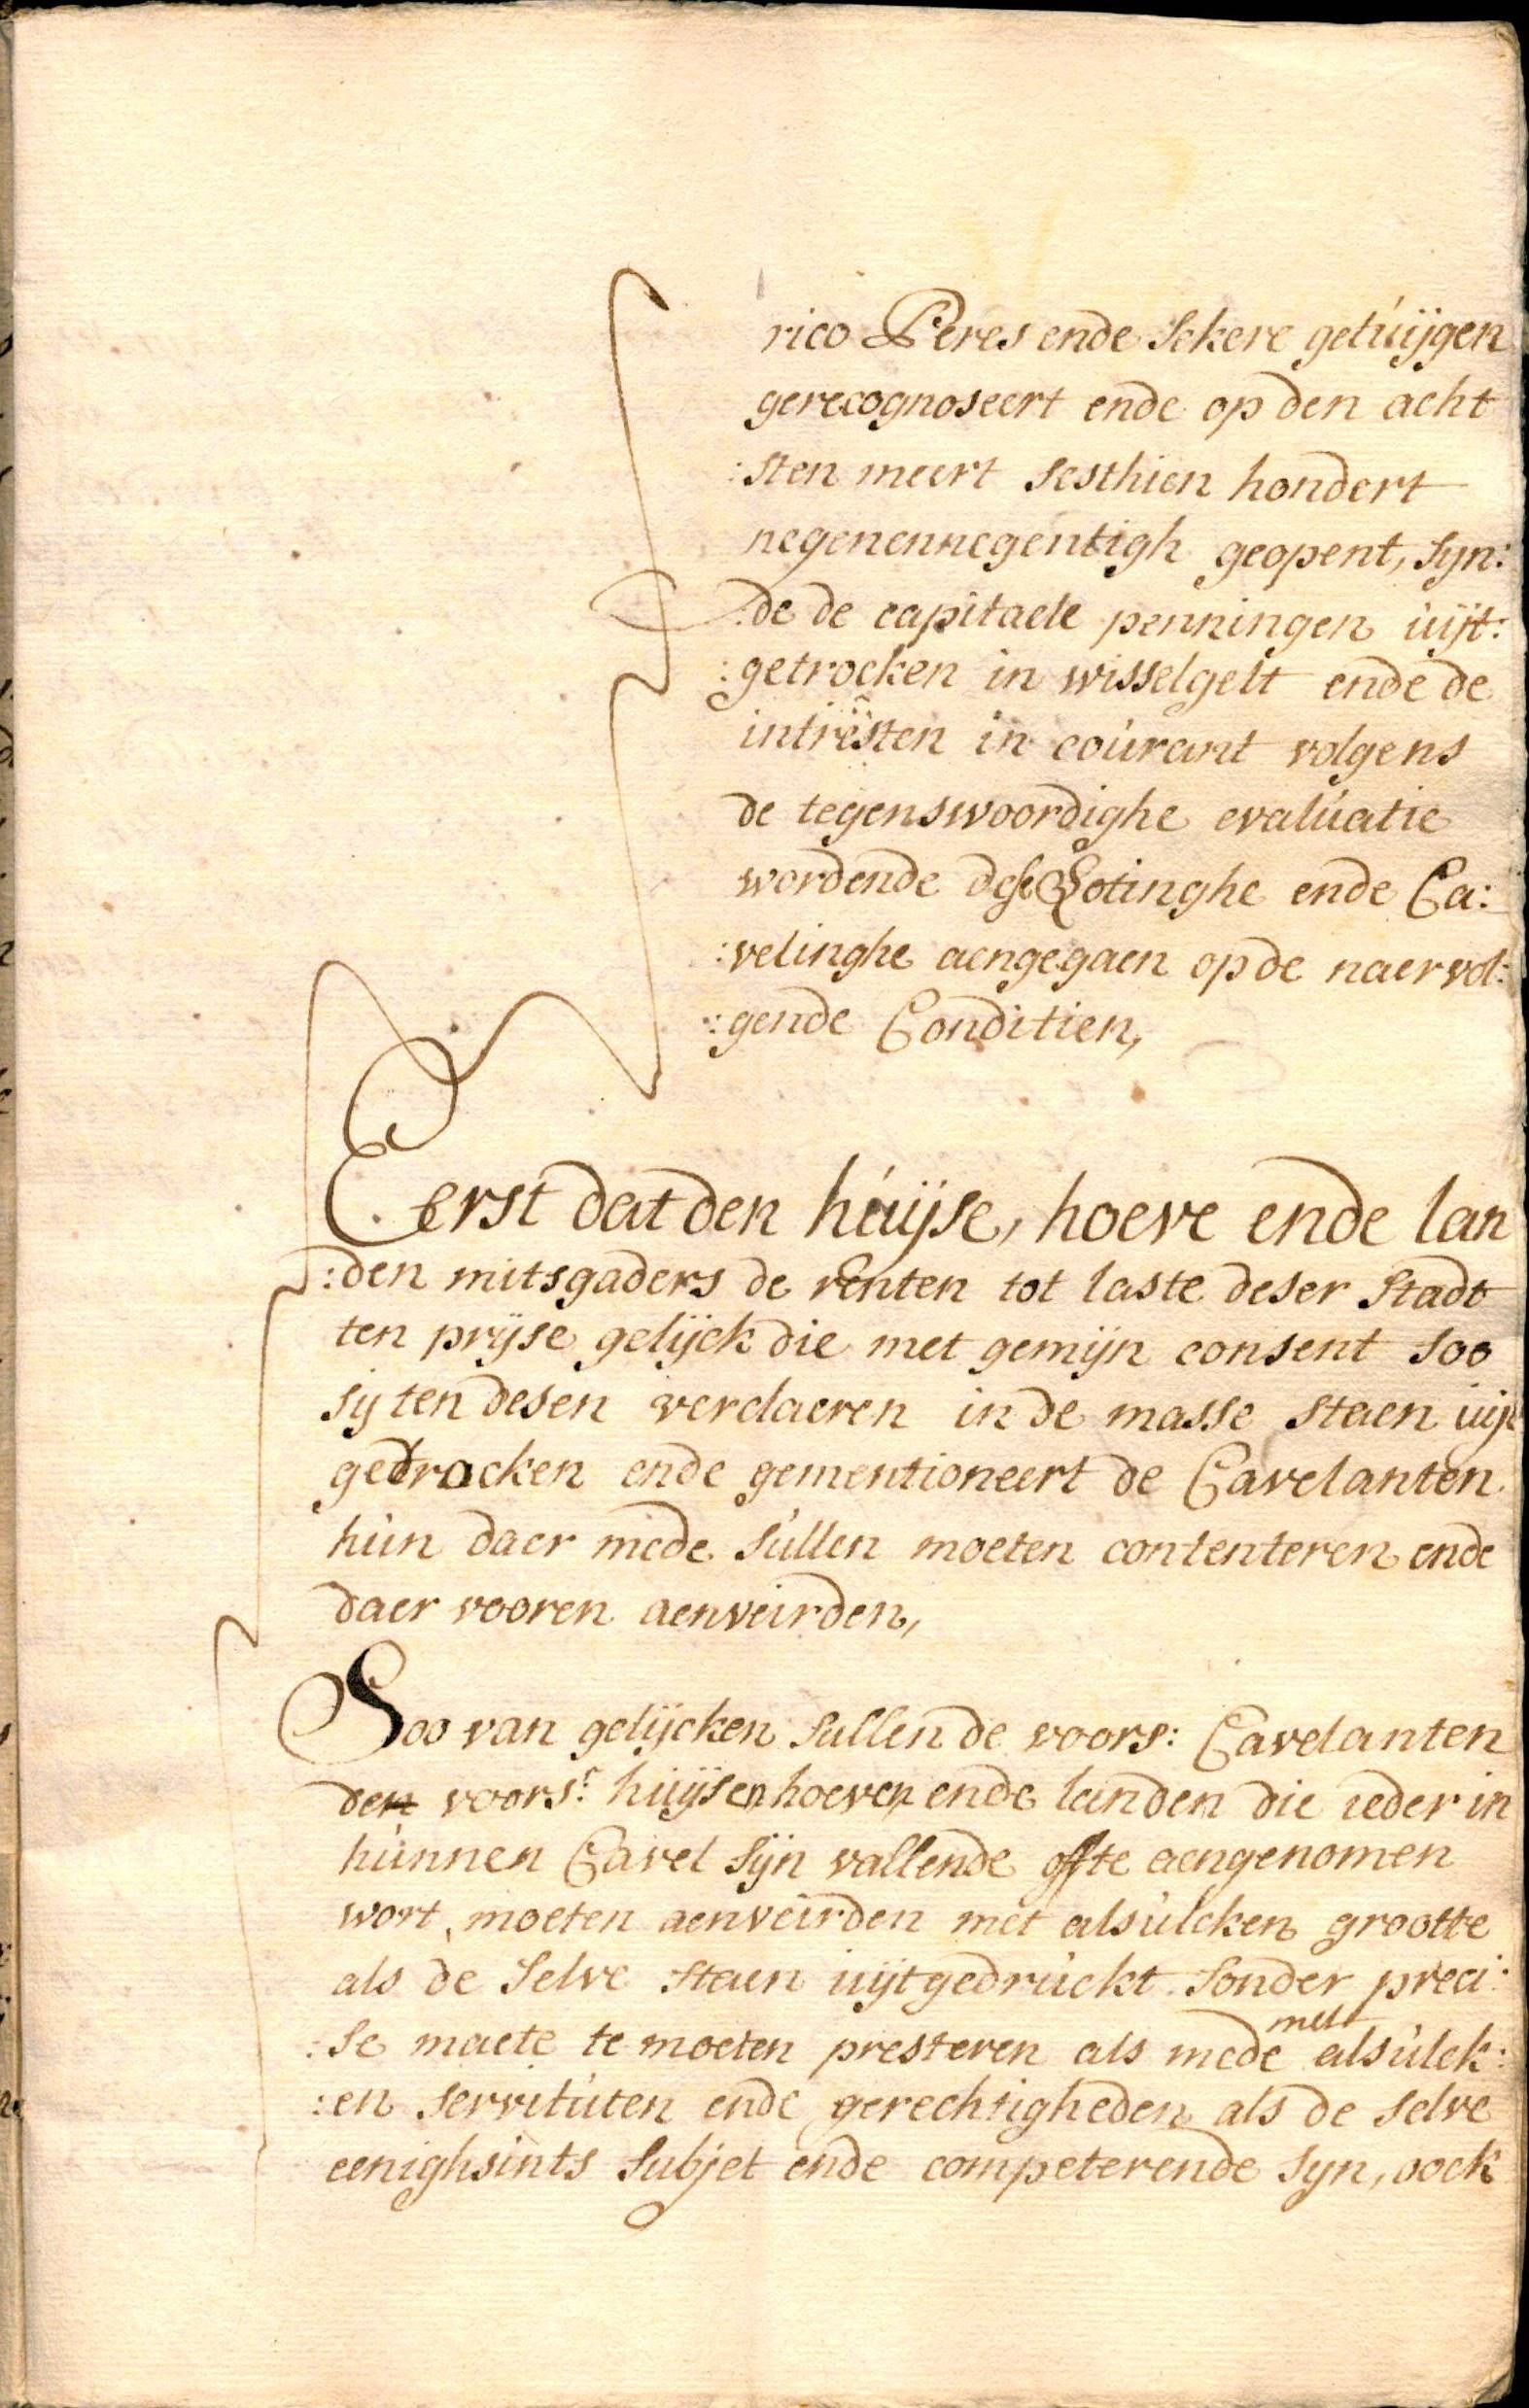 rico Peres ende sekere getuijgen
gerecognoseert ende op den acht
:sten meert sesthien hondert
negenennegentigh geopent, syn:
:de de capitaele penningen uijt:
:getrocken in wisselgelt ende de
intresten in courant volgens
de tegenswoordighe evaluatie
wordende dese Lotinghe ende Ca:
:velinghe aengegaen op de naervol:
:gende Conditien,
Eerst dat den huijse, hoeve ende lan
:den mitsgaders de renten tot laste deser stadt
ten prijse gelijck die met gemijn consent soo
sij ten desen verclaeren in de masse staen uijt
getrocken ende gementioneert de Cavelanten
hun daer mede sullen moeten contenteren ende
daer vooren aenveirden,
Soo van gelijcken sullen de voors: Cavelanten
den voors.r huijsen hoeven ende landen die ieder in
hunnen Cavel sijn vallende offte aengenomen
wort, moeten aenveirden met alsulcken grootte
als de selve staen uijtgedruckt sonder preci:
:se maete te moeten presteren als mede met alsulck:
:en servituten ende gerechtigheden als de selve
eenighsints subjet ende competerende syn, oock